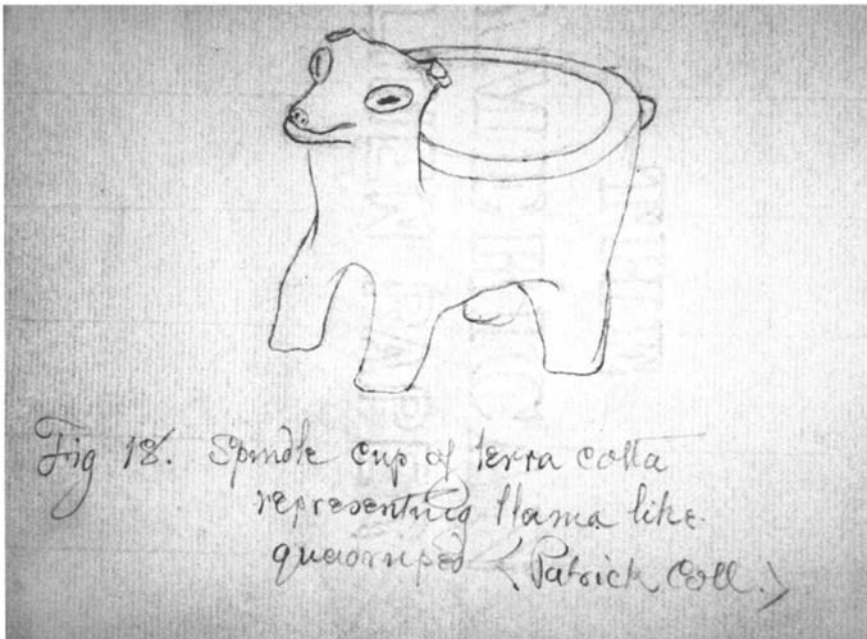 Fig 18. Spindle cup of terra cotta
representing llama like
quadruped (Patrick Coll.)